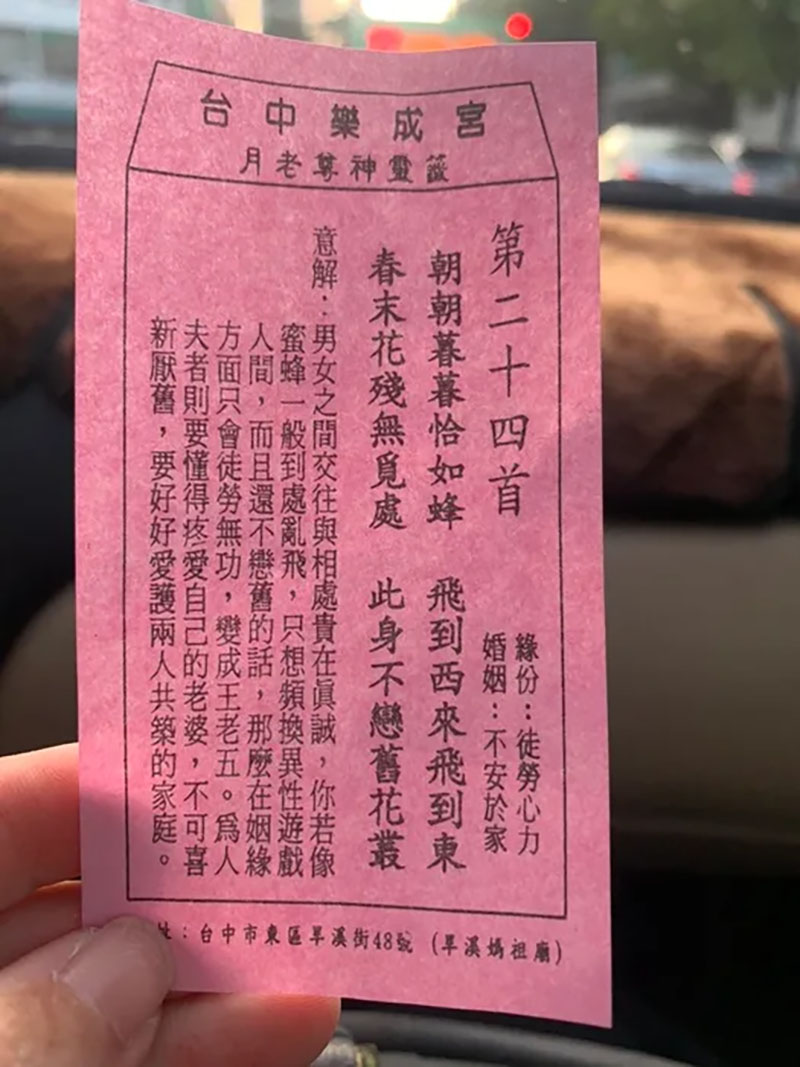 台中樂成宮
月老尊神靈籤
第二十四首
緣份：徒勞心力
婚姻：不安於家
朝朝暮暮恰如蜂 飛到西來飛到東
春末花殘無覓處 此身不戀舊花叢
意解：男女之間交往與相處貴在真誠，你若像
蜜蜂一般到處亂飛，只想頻換異性遊戲
人間，而且還不戀舊的話，那麼在姻緣
方面只會徒勞無功，變成王老五。為人
夫者則要懂得疼愛自己的老婆，不可喜
新厭舊，要好好愛護兩人共築的家庭。
址：台中市東區旱溪街48號（旱溪媽祖廟）